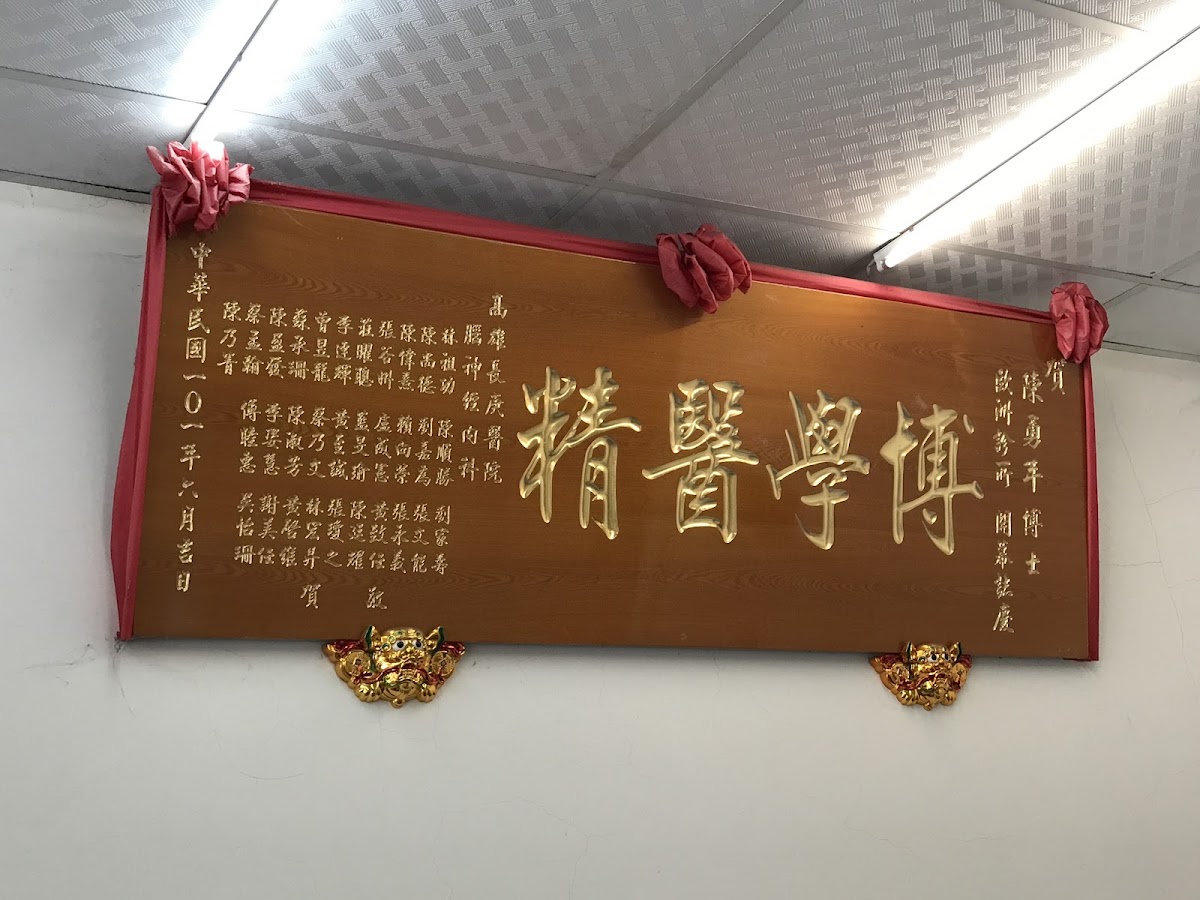 賀
陳勇年博士
歐洲診所 開幕誌慶
博學醫精
高雄長庚醫院
腦神經內科
林祖功 陳順勝 劉家壽
陳嵩德 劉嘉為 張文能
陳偉熹 賴向榮 張永義
張谷州 盧成憲 黃敦任
莊曜聰 藍旻瑜 陳延耀
李連輝 黃至誠 張瓊之
曾昱龍 蔡乃文 林宏昇
蘇承珊 陳淑芳 黃啓維
陳盈發 李姿慧 謝美任
蔡孟翰 傅睦惠 吳怡珊
陳乃菁
敬賀
中華民國一〇一年六月吉日